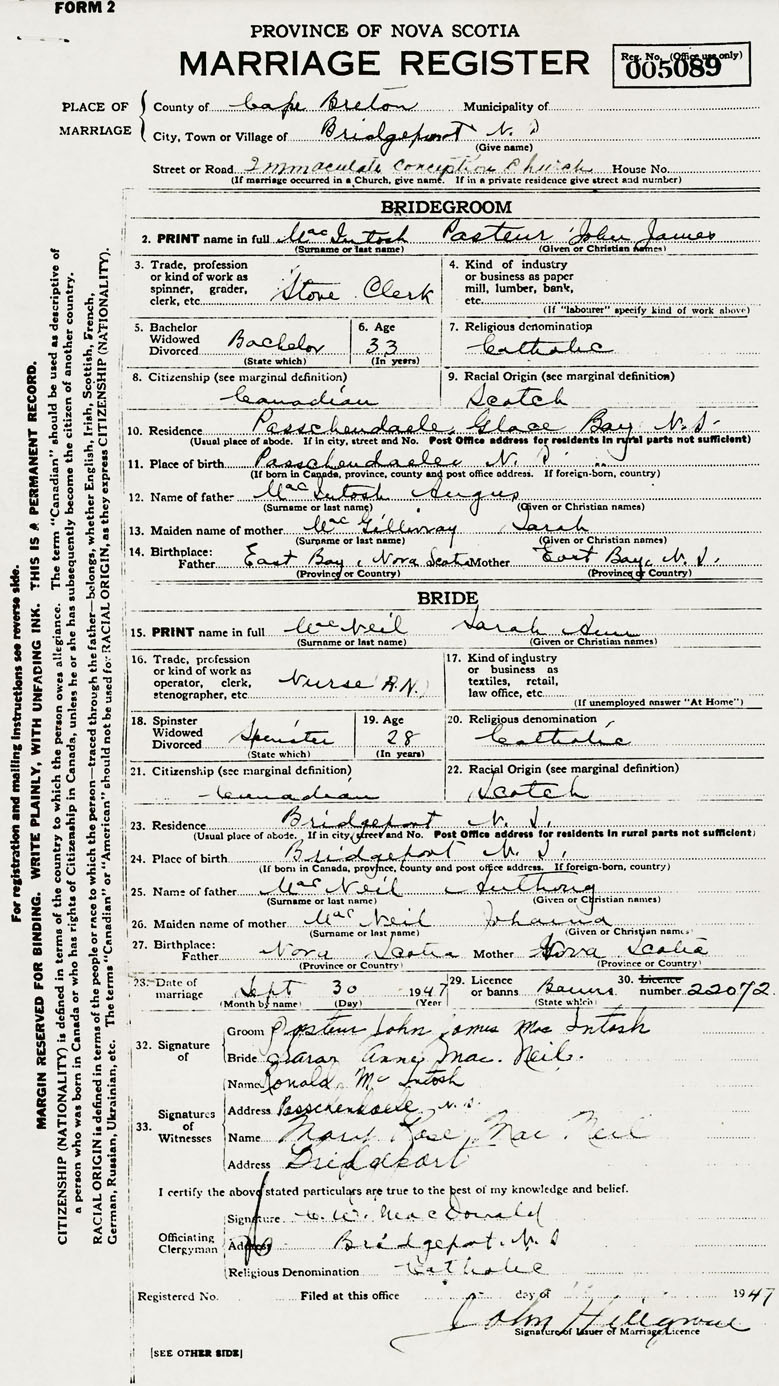 FORM 2
PROVINCE OF NOVA SCOTIA
MARRIAGE REGISTER
Reg. No. (Office use only)
005089
PLACE OF MARRIAGE
County of Cape Breton Municipality of
City, Town or Village of Bridgeport N. S
(Give name)
Street or Road Immaculate Conception Church House No.
(If marriage occurred in a Church, give name. If in a private residence give street and number)
BRIDEGROOM
2. PRINT name in full MacIntosh Pasteur John James
(Surname or last name) (Given or Christian names)
3. Trade, profession or kind of work as spinner, grader, clerk, etc. Store Clerk
4. Kind of industry or business as paper mill, lumber, bank, etc.
(If "labourer" specify kind of work above)
5. Bachelor Widowed Divorced Bachelor
(State which)
6. Age 33
(In years)
7. Religious denomination
Catholic
8. Citizenship (see marginal definition)
Canadian
9. Racial Origin (see marginal definition)
Scotch
10. Residence Passchendaele, Glace Bay N. S.
(Usual place of abode. If in city, street and No. Post Office address for residents in rural parts not sufficient)
11. Place of birth Passchendaele N. S
(If born in Canada, province, county and post office address. If foreign-born, country)
12. Name of father MacIntosh Angus
(Surname or last name) (Given or Christian names)
13. Maiden name of mother MacGillivray Sarah
(Surname or last name) (Given or Christian names)
14. Birthplace: Father East Bay, Nova Scotia Mother East Bay, N. S.
(Province or Country) (Province or Country)
BRIDE
15. PRINT name in full MacNeil Sarah Ann
(Surname or last name) (Given or Christian names)
16. Trade, profession or kind of work as operator, clerk, stenographer, etc Nurse (R.N.)
17. Kind of industry or business as textiles, retail, law office, etc.
(If unemployed answer "At Home")
18. Spinster Widowed Divorced Spinster
(State which)
19. Age 28
(In years)
20. Religious denomination
Catholic
21. Citizenship (see marginal definition)
Canadian
22. Racial Origin (see marginal definition)
Scotch
23. Residence Bridgeport N. S.
(Usual place of abode. If in city, street and No. Post Office address for residents in rural parts not sufficient)
24. Place of birth Bridgeport N. S.
(If born in Canada, province, county and post office address. If foreign-born, country)
25. Name of father MacNeil Anthony
(Surname or last name) (Given or Christian names)
26. Maiden name of mother MacNeil Johanna
(Surname or last name) (Given or Christian names)
27. Birthplace: Father Nova Scotia Mother Nova Scotia
(Province or Country) (Province or Country)
28. Date of marriage Sept 30 1947
(Month by name) (Day) (Year)
29. Licence or banns Banns
(State which)
30. Licence number 22072
32. Signature of
Groom Pasteur John James Mac Intosh
Bride Sarah Anne Mac. Neil.
33. Signatures of Witnesses
Name Ronald McIntosh
Address Passchendaele, N. S.
Name Mary Rose Mac Neil
Address Bridgeport
I certify the above stated particulars are true to the best of my knowledge and belief.
Officiating Clergyman
Signature C. W. MacDonald
Address Bridgeport. N. S
Religious Denomination Catholic
Registered No. Filed at this office day of 1947
John
Signature of Issuer of Marriage Licence
[SEE OTHER SIDE]
For registration and mailing instructions see reverse side.
MARGIN RESERVED FOR BINDING. WRITE PLAINLY, WITH UNFADING INK. THIS IS A PERMANENT RECORD.
CITIZENSHIP (NATIONALITY) is defined in terms of the country to which the person owes allegiance. The term "Canadian" should be used as descriptive of
a person who was born in Canada or who has rights of Citizenship in Canada, unless he or she has subsequently become the citizen of another country.
RACIAL ORIGIN is defined in terms of the people or race to which the person—traced through the father—belongs, whether English, Irish, Scottish, French,
German, Russian, Ukrainian, etc. The terms "Canadian" or "American" should not be used for RACIAL ORIGIN, as they express CITIZENSHIP (NATIONALITY).